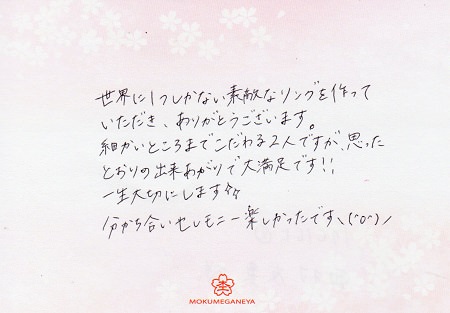 世界に1つしかない素敵なリングを作って
いただき、ありがとうございます。
細かいところまでこだわる2人ですが、思った
とおりの出来あがりで大満足です!!
一生大切にします♪♪
分かち合いセレモニー楽しかったです、(^o^)ノ
MOKUMEGANEYA